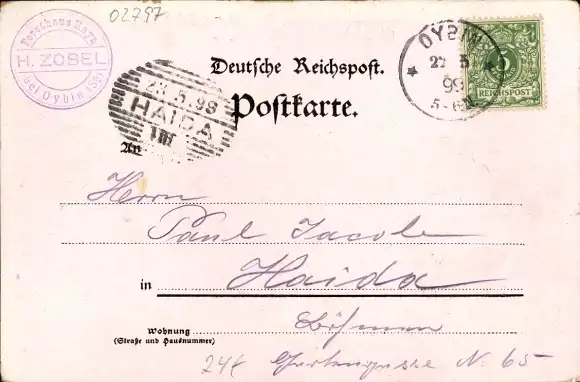 02797
Forsthaus Hayn
H. ZOBEL
bei Oybin (Sa.)
Deutsche Reichspost.
Postkarte.
OYBIN
99
5-6N
REICHSPOST
23.5.99
HAIDA
An
Herrn
Paul Jacob
in Haida
Böhmen
Wohnung
(Straße und Hausnummer)
Gartengasse No 65